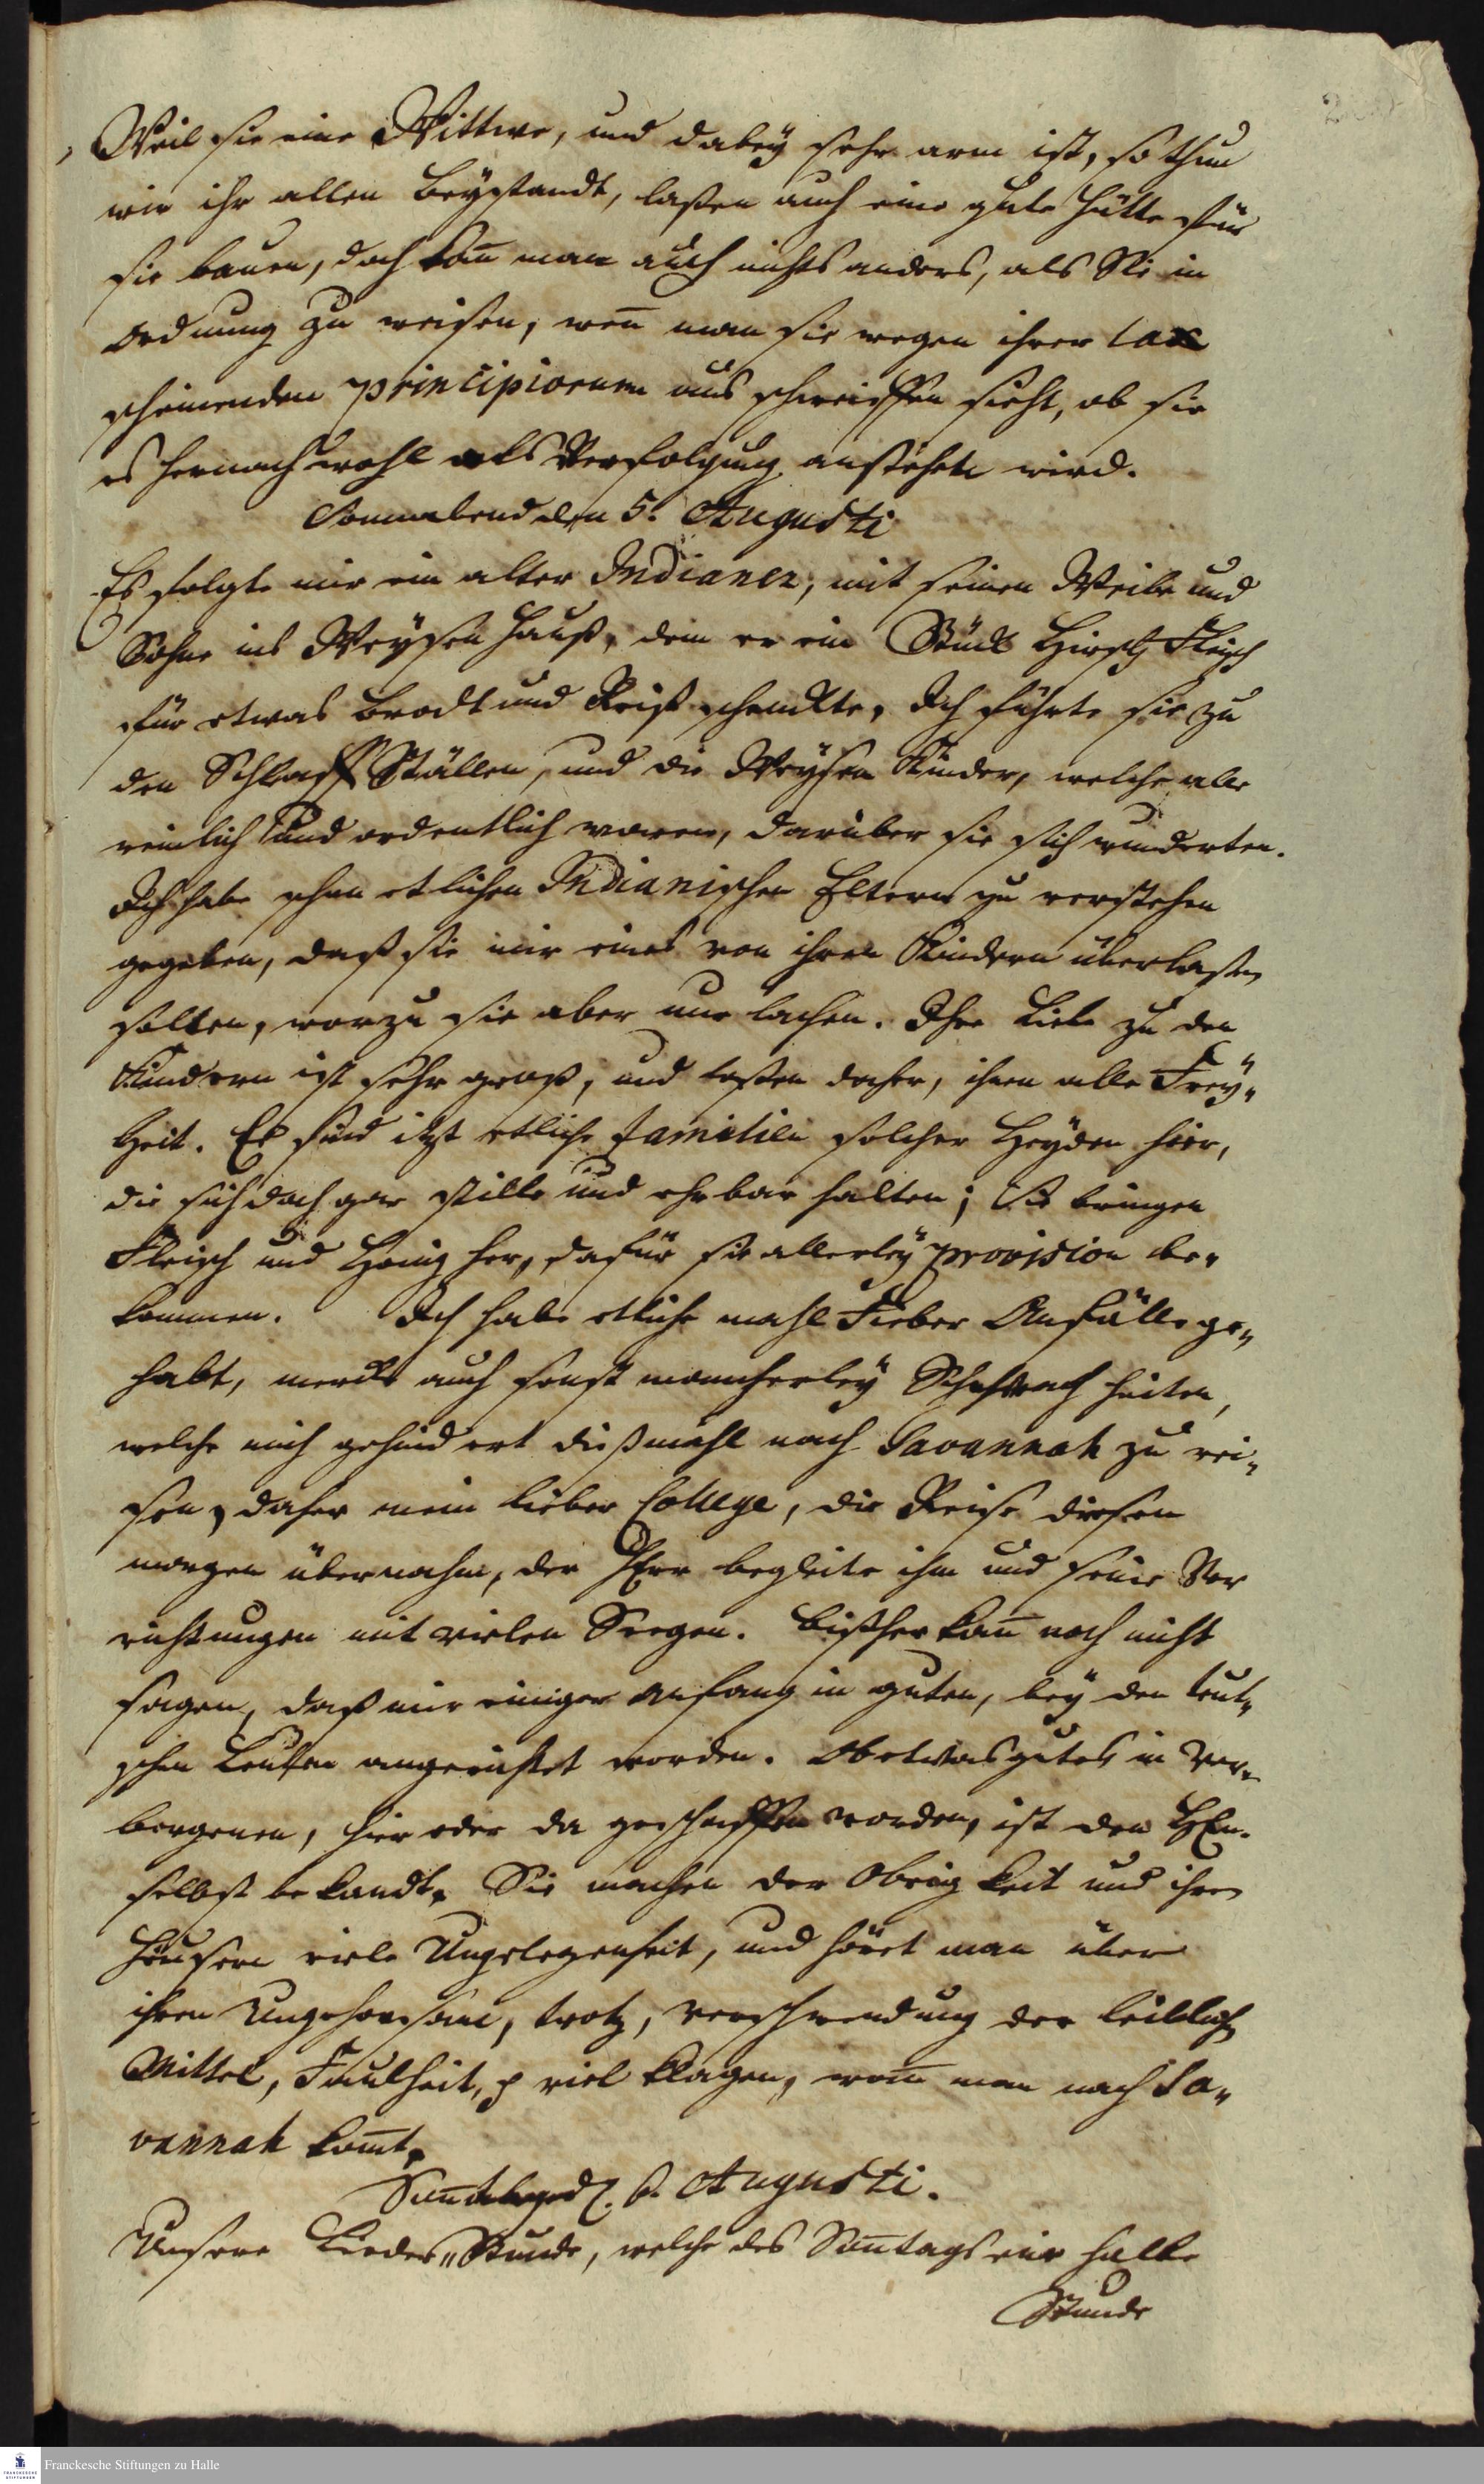 Weil sie eine Wittwe, und dabey sehr arm ist, so thun
wir ihr allen Beystandt, laßen auch eine gute Hütte für
sie bauen, doch kan̄ man auch nichts anders, als Sie in
Ordnung zu weisen, wen̄ man sie wegen ihrer lax
scheinenden principiorum aus schweiffen sieht, ob sie
es hernach wohl als Verfolgung ansehen wird.
Sonnabend den 5. Augusti
Es folgte mir ein alter Indianer, mit seinen Weibe und
Sohne ins Weysen Hauß, dem er ein Stück Hirsch Fleisch
für etwas Brodt und Reiß schenckte, Ich führte sie zu
den Schlaff Ställen, und die Weysen Kinder, welche alle
reinlich und ordentlich waren, darüber sie sich wunderten.
Ich habe schon etlichen Indianischen Eltern zu verstehen
gegeben, daß sie mir eines von ihren Kindern überlaßen
solten, worzu sie aber nur lachen. Ihre Liebe zu den
Kindern ist sehr groß, und laßen daher, ihnen alle Frey„
heit. Es sind itzt etliche familien solcher Heyden hier,
die sich doch gar stille und ehrbar halten; Sie bringen
Fleisch und Honig her, dafür sie allerley provision be„
kommen. Ich habe etliche mahl Fieber Anfälle ge„
habt, mercke auch sonst mancherley Schwach heiten,
welche mich gehindert dießmahl nach Savannah zu rei„
sen, daher mein lieber College, die Reise diesen
morgen übernahm, der HErr begleite ihm und seine Ver
richtungen mit vielen Seegen. Bißher kan̄ noch nicht
sagen, daß nur einiger Anfang in guten, bey den teut„
schen Leuten angerichtet worden. Ob etwas gutes in ver„
borgenen, hier oder da geschaffen worden, ist den HErn.
selbst bekandt, Sie machen der Obrigkeit und ihren
Häusern viele Ungelegenheit, und höret man über
ihren Ungehorsam, trotz, verschwendung der leiblichen
Mittel, Faulheit, p viel klagen, wen̄ man nach Sa„
vannah kom̄t,
Sun̄tags d. 6. Augusti.
Unsere Lieder„Stunde, welche des Sun̄tags eine halbe
Stunde
Franckesche Stiftungen zu Halle